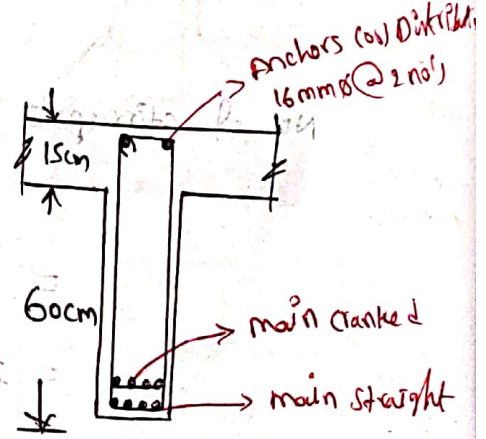 Anchors (or)
16mmø @ 2no's
15cm
60cm
main cranked
main straight